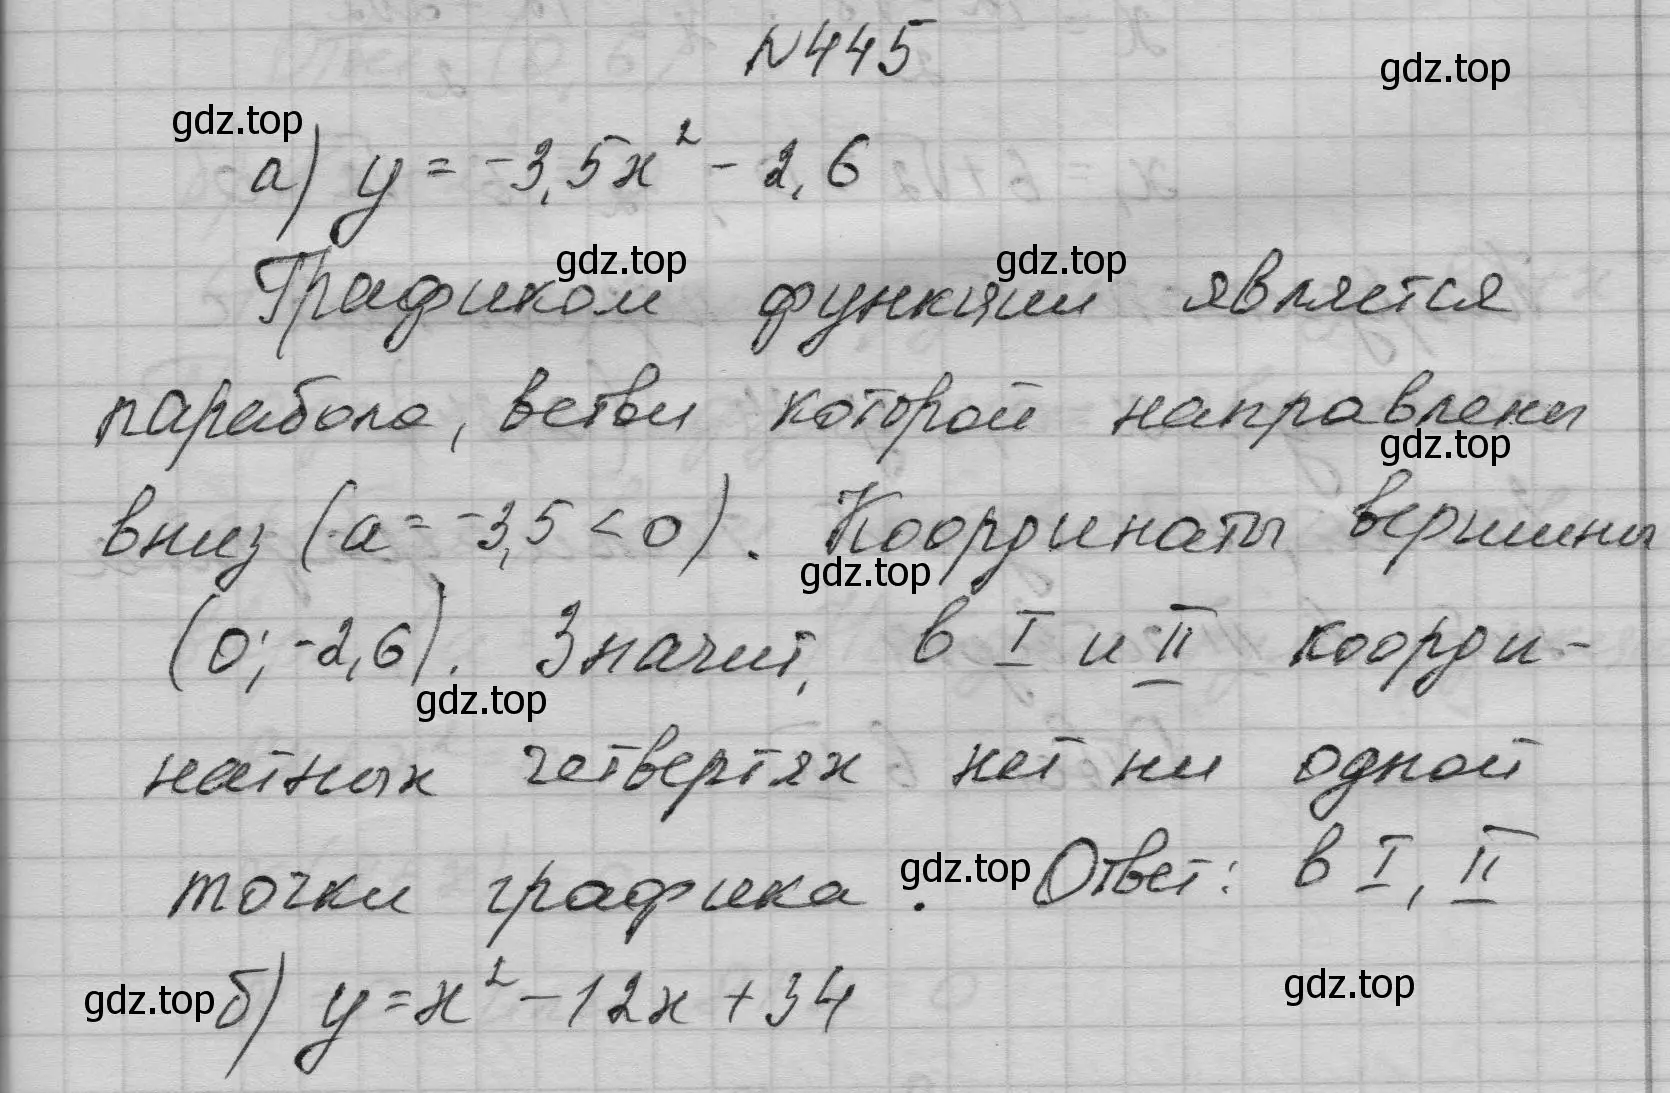 N445
gdz.top
gdz.top
а) y = -3,5x² - 2,6
gdz.top
gdz.top
Графиком функции является
парабола, ветви которой направлены
gdz.top
вниз (a = -3,5 < 0). Координаты вершины
gdz.top
(0; -2,6). Значит, в I и II коорди-
gdz.top
натных четвертях нет ни одной
точки графика. Ответ: в I, II
gdz.top
б) y = x² - 12x + 34
gdz.top
gdz.top